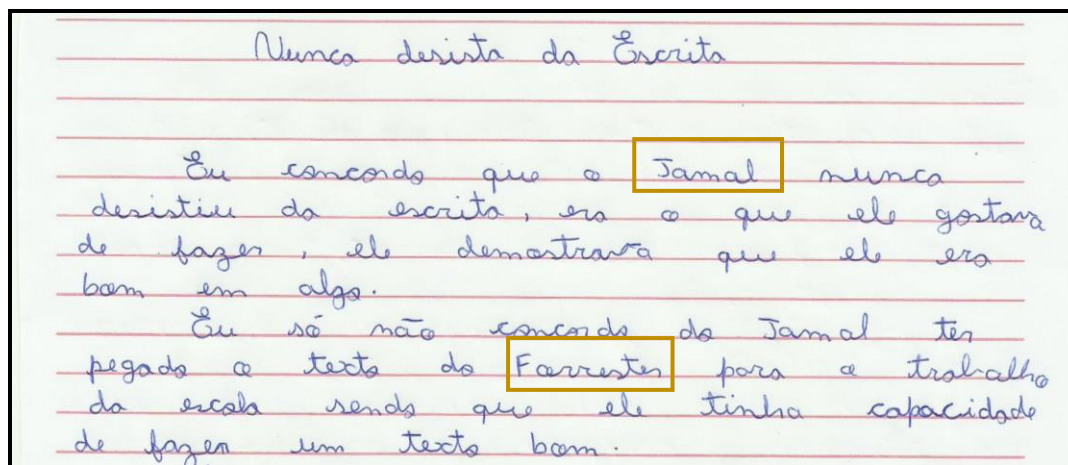 Nunca desista da Escrita
Eu concordo que o Jamal nunca
desistiu da escrita, era o que ele gostava
de fazer, ele demostrava que ele era
bom em algo.
Eu só não concordo do Jamal ter
pegado o texto do Forrester para o trabalho
da escola sendo que ele tinha capacidade
de fazer um texto bom.